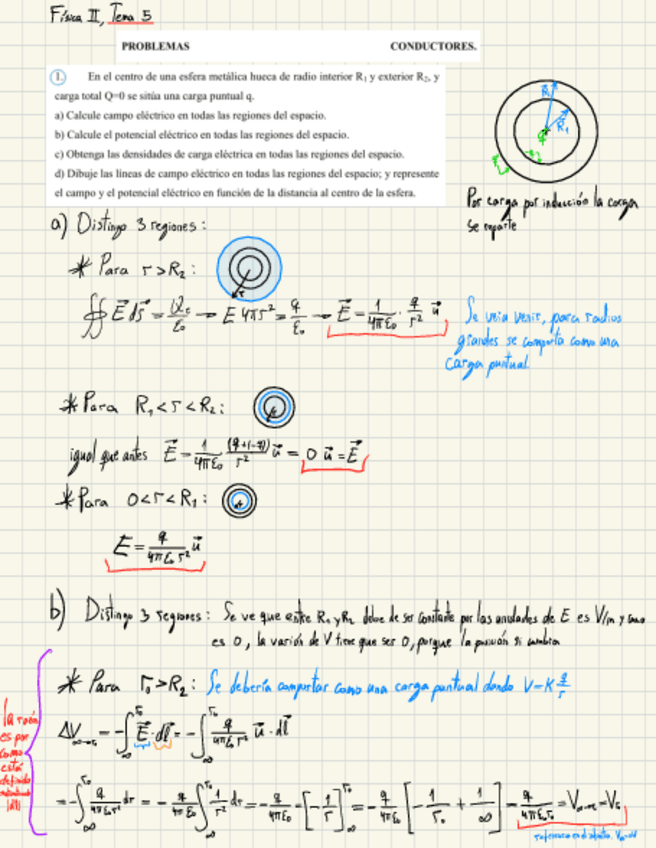 Física II, Tema 5
PROBLEMAS CONDUCTORES.
1. En el centro de una esfera metálica hueca de radio interior R₁ y exterior R₂, y
carga total Q=0 se sitúa una carga puntual q.
a) Calcule campo eléctrico en todas las regiones del espacio.
b) Calcule el potencial eléctrico en todas las regiones del espacio.
c) Obtenga las densidades de carga eléctrica en todas las regiones del espacio.
d) Dibuje las líneas de campo eléctrico en todas las regiones del espacio; y represente
el campo y el potencial eléctrico en función de la distancia al centro de la esfera.
R₁
Por carga por inducción la carga
se reparte
a) Distingo 3 regiones:
* Para r>R₂:
r
∯ E⃗ ds⃗ = Q/ε₀ → E 4πr² = q/ε₀ → E⃗ = 1/4πε₀ · q/r² u⃗
Se veia venir, para radios
grandes se comporta como una
carga puntual
* Para R₁<r<R₂:
igual que antes E⃗ = 1/4πε₀ (q+(-q))/r² u⃗ = 0 u⃗ = E⃗
* Para 0<r<R₁:
E⃗ = q/4πε₀r² u⃗
b) Distingo 3 regiones: Se ve que entre R₁ y R₂ debe de ser constante por las unidades de E es V/m y como
es 0, la varión de V tiene que ser 0, porque la posición si cambia
* Para r₀>R₂: Se debería comportar como una carga puntual dando V=K q/r
ΔV∞→r₀ = -∫∞^r₀ E⃗·dl⃗ = -∫∞^r₀ q/4πε₀r² u⃗·dl⃗
la razón
es por
como
está
definido
= -∫∞^r₀ q/4πε₀r² dr = -q/4πε₀ ∫∞^r₀ 1/r² dr = -q/4πε₀ · [-1/r]∞^r₀ = -q/4πε₀ [-1/r₀ + 1/∞] = q/4πε₀r₀